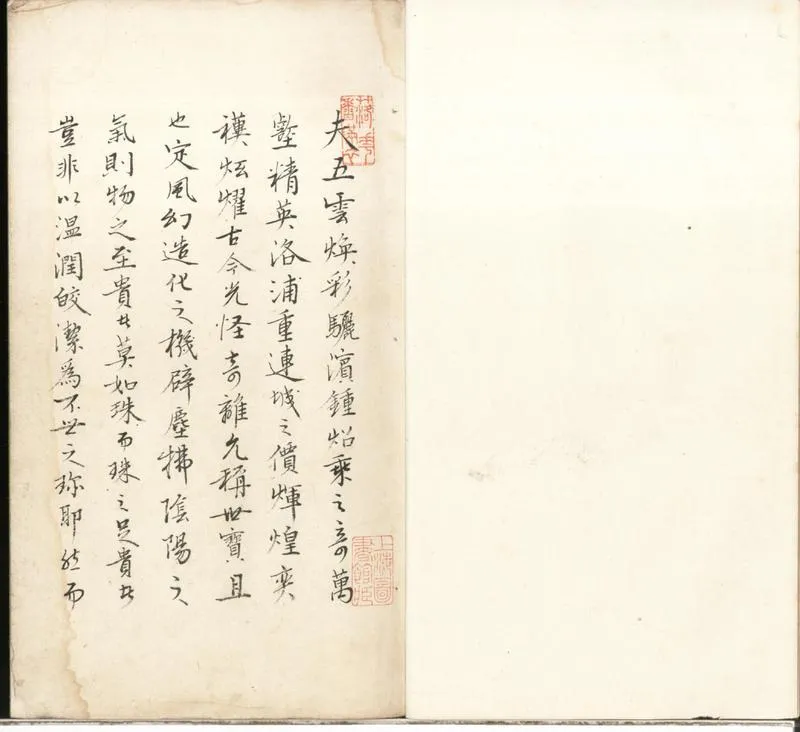 夫五雲煥彩驪濱鍾炤乘之奇萬
壑精英洛浦重連城之價煇煌奕
禩炫耀古今光怪奇離允稱世寶且
也定風幻造化之機辟塵拂陰陽之
氣則物之至貴者莫如珠而珠之足貴者
豈非以温潤皎潔爲不世之珎耶然而
上海圖書館藏